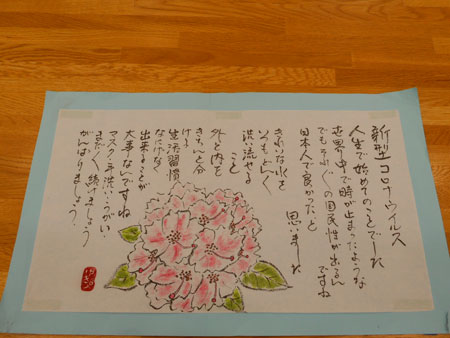 新型コロナウイルス
人生で始めてのことでした
世界中で時が止まったような
でもそれぞれの国民性が出るん
ですね
日本人で良かったと
思いました
きれいな水を
いつもどんく
洗い流せる
こと
外と内を
きちいと分
ける
生活習慣
なにげなく
出来ることが
大事なんですね
マスク・手洗い・うがい
まだまだ続けましょう
がんばりましょう!